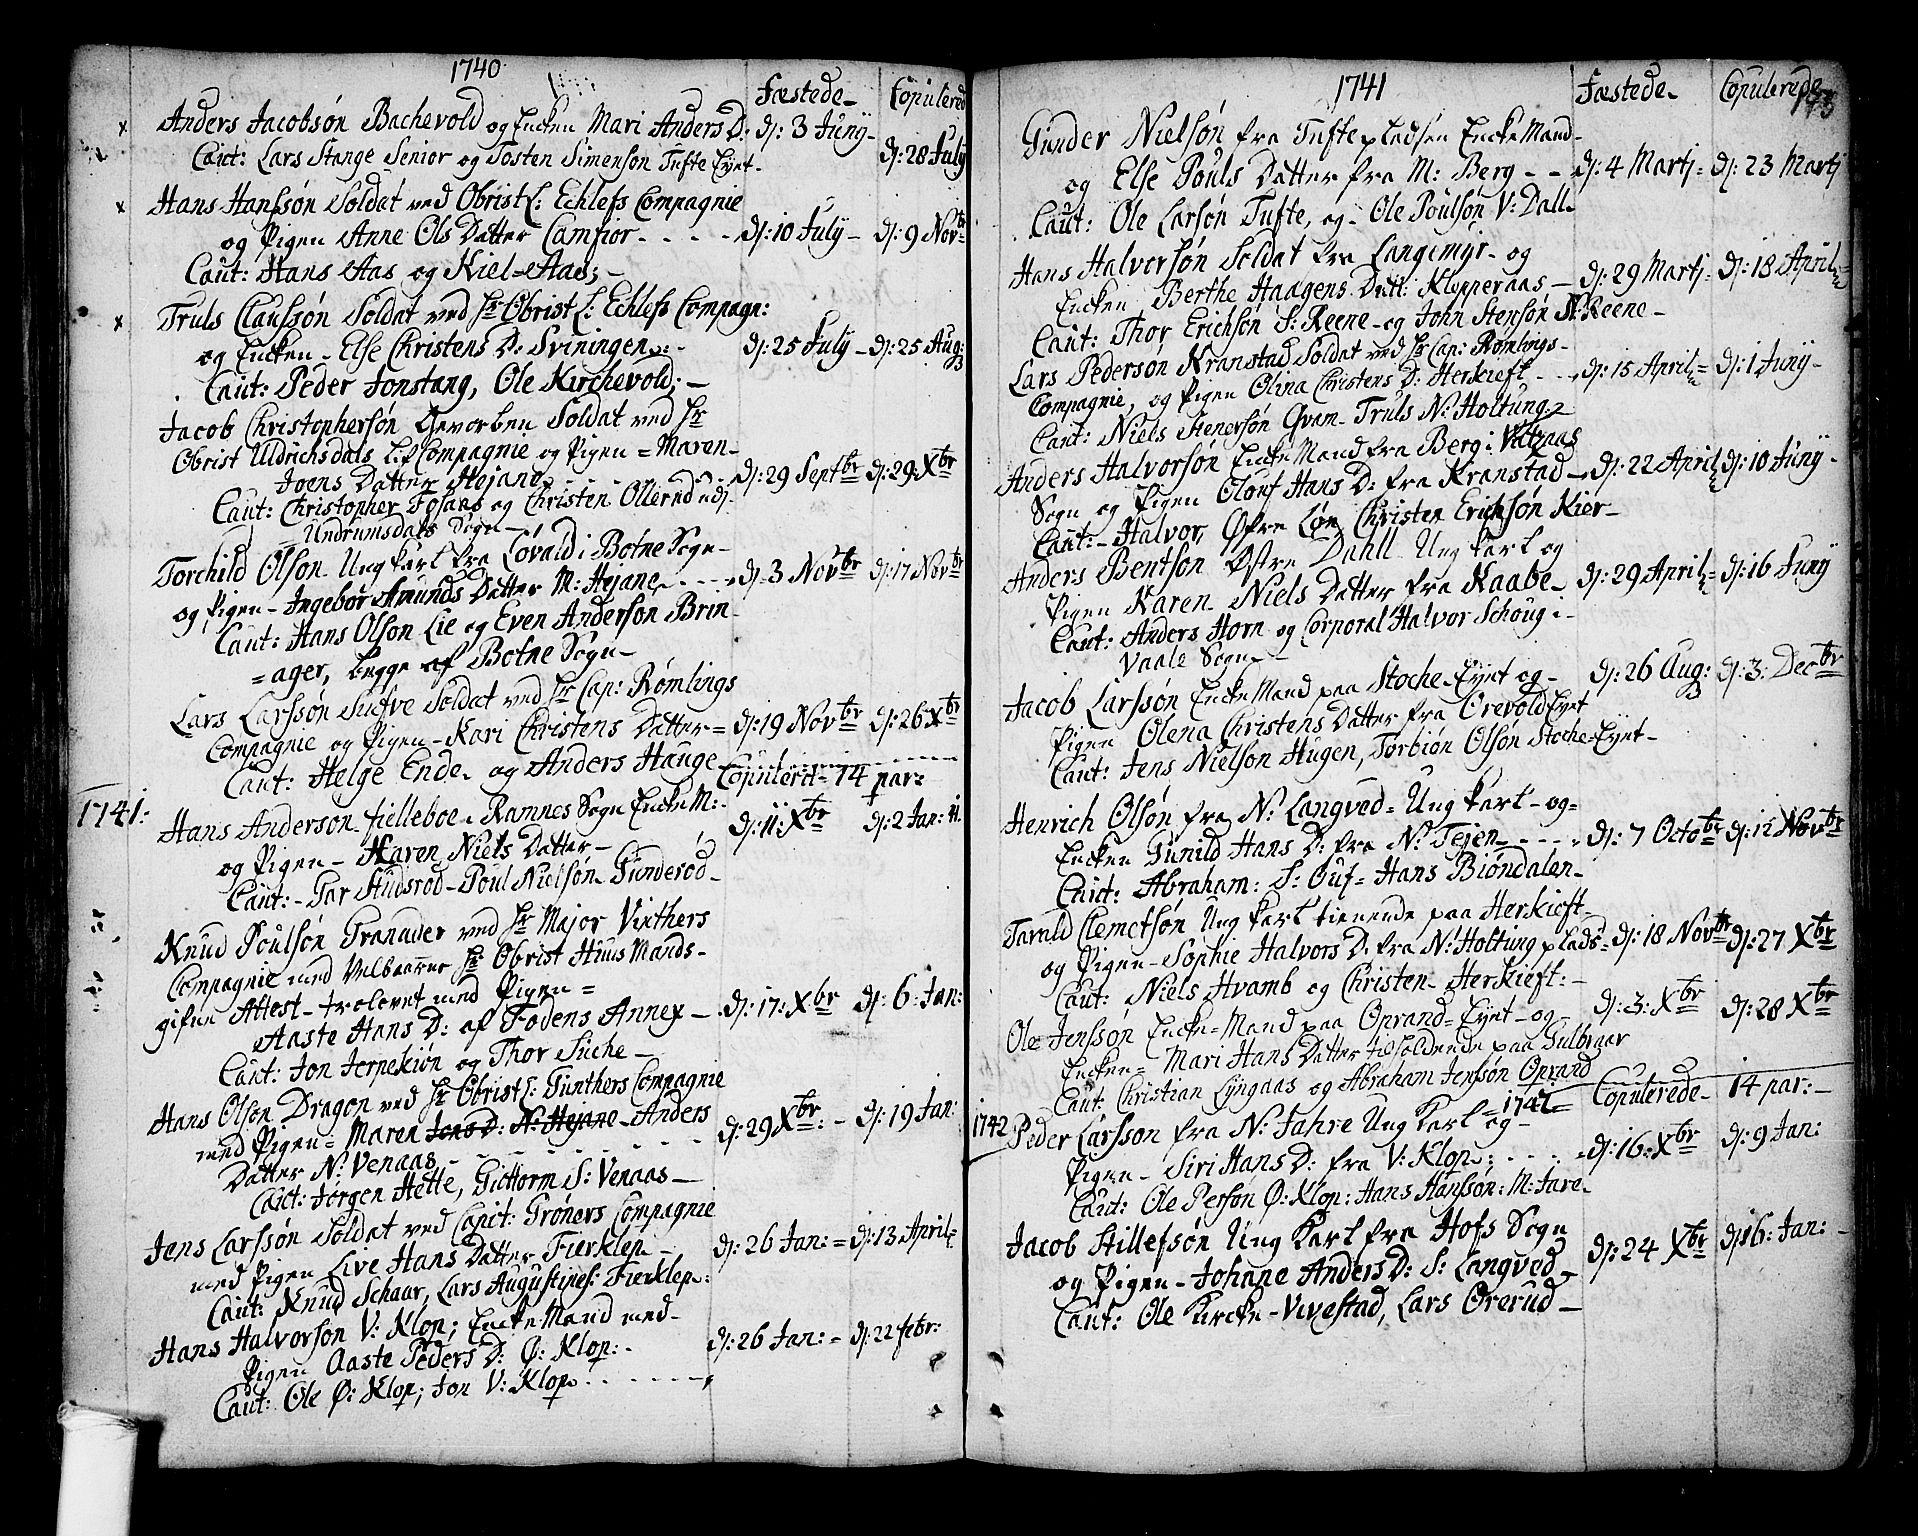 1740
Fæstede Copulered
Anders Jacobsøn Bachevold og Encken Mari Anders D: dj: 3 Junÿ
dj: 28 Julÿ
Caut: Lars Stange Senior og Tosten Simenson Tufte Eÿet
Hans Hanssøn Soldat ved Obrist L: Echlefs Compagnie
og Pigen Anne Ols Datter Camfior dj: 10 Julÿ dj: 9 Novbr
Caut: Hans Aas og Kiel Aas;
Truls Claussøn Soldat ved Hr Obrist L: Echlefs Compagn:
og Encken Else Christens D: Sviningen dj: 25 Julÿ dj: 25 Aug:
Caut: Peder Jonstang, Ole Kirchevold;
Jacob Christophersøn Gevorben Soldat ved Hr
Obrist Uldrichsdals Lif Compagnie og Pigen = Maren
Joens Datter Hejane dj: 29 Septbr dj: 29 Xbr
Caut: Christopher Fosaas og Christen Ollerud udj
Undrumsdals Sogn
Torchild Olson Ung Karl fra Løvald i Botne Sogn
og Pigen Ingebor Amunds Datter M: Hejane dj 3 Novbr dj: 17 Novbr
Caut: Hans Olson Lie og Even Anderson Brin
=ager, begge af Botne Sogn
Lars Larssøn Suefve Soldat ved Hr Cap: Rømlings
Compagnie og Pigen Kari Christens Datter dj: 19 Novbr dj: 26 Xbr
Caut: Helge Ende og Anders Hauge
Copulerd 14 par:
1741:
Hans Anderson fielleboe Ramnes Sogn Encke M: dj: 11: Xbr dj: 2 Jan: 41.
og Pigen Karen Niels Datter
Caut: Tar Studsrød Poul Nielsøn Gunderød
Knud Poulsøn Granader ved Hr Major Vinthers
Compagnie med Velbaarne Hr Obrist Huus Mands
gifne Attest trolovet med Pigen =
Aaste Hans D: af Fodens Annex dj: 17: Xbr dj: 6: Jan:
Caut: Jon Jerpekiøn og Thor Suche
Hans Olson Dragon ved Hr Obrist L: Gunthers Compagnie
med Pigen = Maren Jens D: N: Hejane Anders dj: 29 Xbr: dj: 19 Jan:
Datter N: Venaas
Caut: Jørgen Hette, Guttorm S: Venaas
Jens Larssøn Soldat ved Capit: Grøners Compagnie
med Pigen Live Hans Datter Fierklep dj: 26 Jan: = dj: 13 April
Caut: Knud Schaar, Lars Augustines: Fierklep:
Hans Halvorson V: Klop; Encke Mand med dj: 26 Jan: = dj: 22 febr:
Pigen Aaste Peders D: Ø: Klop:
Caut: Ole Ø: Klop; Jon V: Klop
1741
Fæstede Copulerede
143
Gunder Nielsøn fra Tufte pladsen Encke Mand
og Else Pouls Datter fra M: Berg dj: 4 Martj = dj: 23 Martj
Caut: Ole Larsøn Tufte, og Ole Poulsøn V: Dall
Hans Halvorsøn Soldat fra Langemÿr og
Encken Berthe Haagens Datt: Klopperaas dj: 29 Martj dj: 18 April
Caut: Thor Erichsøn S: Reene og John Stensøn N: Reene
Lars Pedersøn Kranstad Soldat ved Hr Cap: Rømlings
Compagnie, og Pigen Olina Christens D: Herkieft dj: 15 April dj: 1 Junÿ
Caut: Niels Stenersøn Qvam Truls N: Holtung
Anders Halvorsøn Encke Mand fra Berg i Vaaaas
Sogn og Pigen Olouf Hans D: fra Kranstad dj: 22 April dj: 10 Junÿ
Caut: Halvor Øfre Løn Christen Erichsøn Kier
Anders Bentson Østre Dahll Ung Karl og
Pigen Karen Niels Datter fra Kaabe dj: 29 April dj: 16 Junÿ
Caut: Anders Horn og Corporal Halvor Schoug
Vaale Sogn
Jacob Larssøn Encke Mand paa Stoche Eÿet og dj: 26 Aug: dj: 3: Decbr
Pigen Olena Christens Datter fra Orevold Eÿet
Caut: Jens Nielson Hugen, Torbiøn Olsøn Stoche=Eÿet
Henrich Olsøn fra N: Langved = Ung Karl og =
Encken Gunild Hans D: fra N: Tejen dj: 7 Octobr dj: 12 Novbr
Caut: Abraham: S: Ouf = Hans Biøndalen
Tarald Clemetsøn Ung Karl tienende paa Herkieft
og Pigen Sophie Halvors D: fra N: Holtung plads dj: 18 Novbr dj: 27 Xbr
Caut: Niels Hvamb og Christen Herkieft:
Ole Jenssøn Encke = Mand paa Oprand = Eÿet og dj: 3: Xbr dj: 28 Xbr
Encken = Mari Hans Datter tilholdende paa Gulbraar
Caut: Christian Lÿngaas og Abraham Jenssøn Oprand
Copulerede 14 par:
= 1742 =
1742 Peder Larsson fra N: Fahre Ung Karl og
Pigen Siri Hans D: fra V: Klop dj: 16: Xbr dj: 9 Jan:
Caut: Ole Persøn Ø: Klop: Hans Hanssøn: M: Fare
Jacob Stillefsøn Ung Karl fra Hofs Sogn
og Pigen Johane Anders D: S: Langved dj: 24 Xbr dj: 16: Jan:
Caut: Ole Kircke Vivestad, Lars Orerud